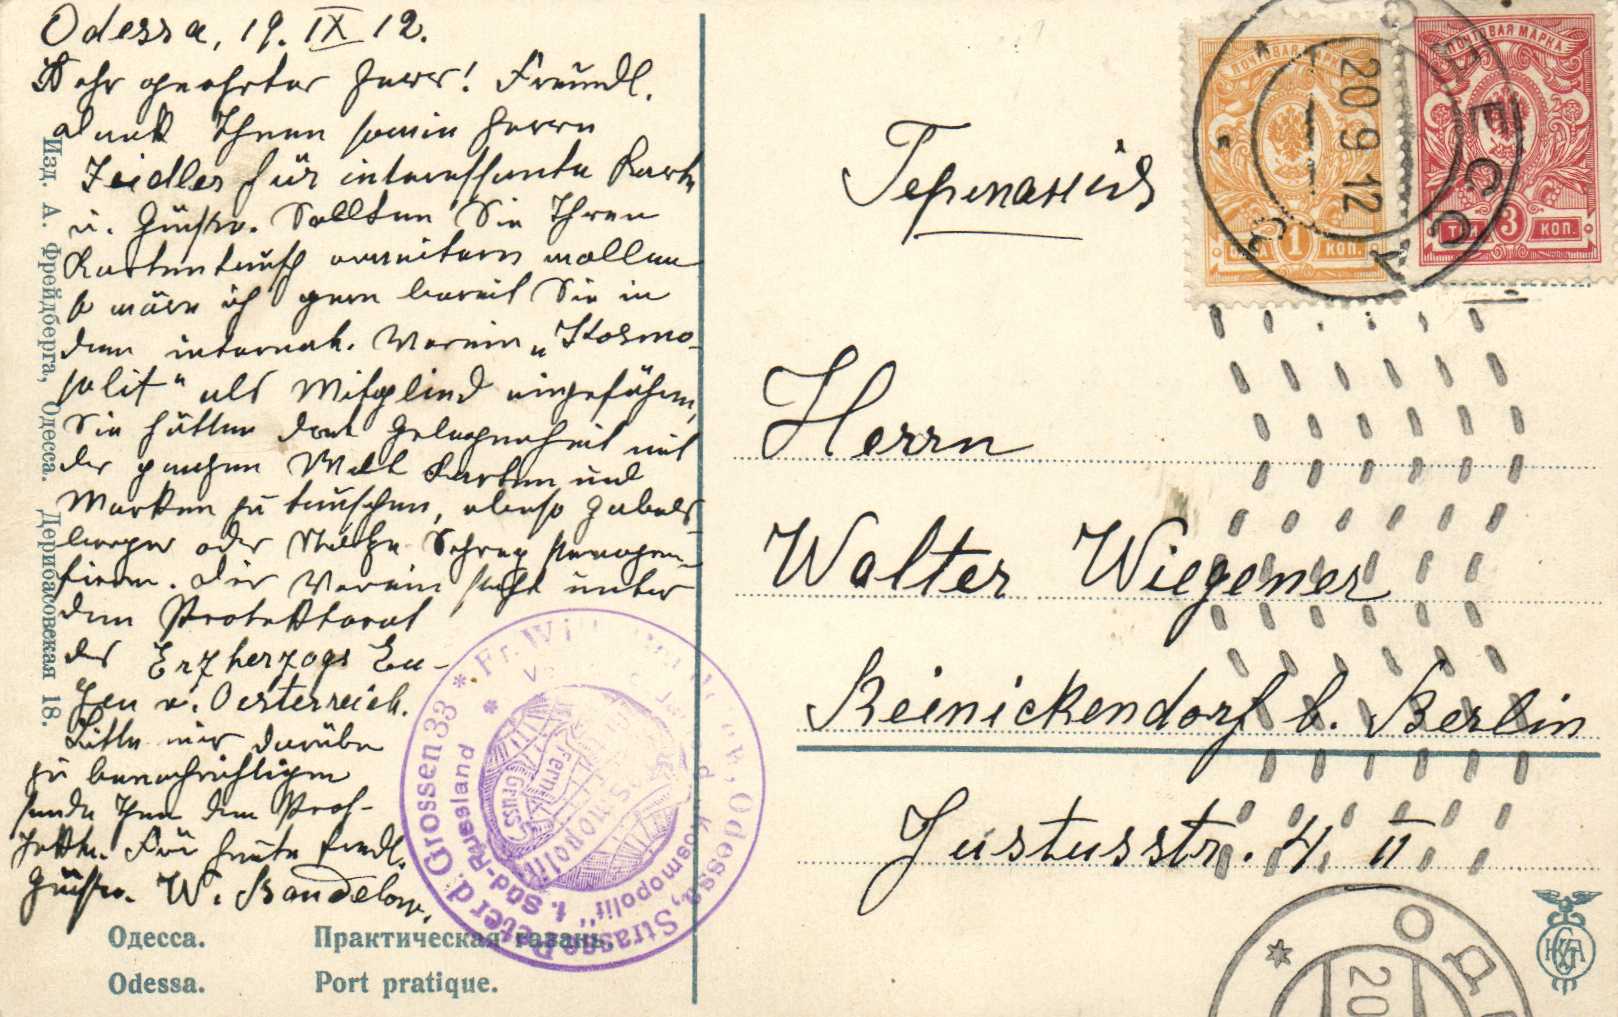 Odessa, 19. IX 12.
Sehr geehrter Herr! Freundl.
dank Ihnen sowie Herrn
Zeidler für interessante Karte
u. Grüsse. Sollten Sie Ihren
Kartentausch erweitern wollen
so wäre ich gern bereit Sie in
den internat. Verein „Kosmo-
polit“ als Mitglied einzuführen,
Sie hätten dort Gelegenheit mit
der ganzen Welt Karten und
Marken zu tauschen, ebenso Gabels
berger oder Stolze Schrey
Der Verein steht unter
dem Protektorat
des Erzherzogs Eu-
gen v. Oesterreich.
Bitte mir darüber
zu benachrichtigen
sende Ihnen den
Für heute frdl.
Grüsse. W. Bandelow.
Изд. А. Фрейдберга, Одесса. Дерибасовская 18.
Одесса. Практическая гавань.
Odessa. Port pratique.
Германія
Herrn
Walter Wiegener
Reinickendorf b. Berlin
Justusstr. 4 II
ПОЧТОВАЯ МАРКА
1 КОП.
ПОЧТОВАЯ МАРКА
ТРИ 3 КОП.
ОДЕССА
20 9 12
* Fr. Odessa, Strasse Peter d Grossen 33 *
Kosmopolit“ f. Süd-Russland
Kosmopolit
Gruss
Fern
ОД
20